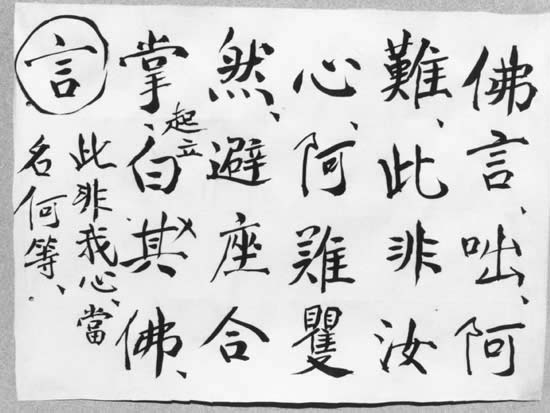 佛言、咄、阿
難、此非汝
心、阿難矍
然、避座合
掌、起立白其佛、
言
此非我心、當
名何等、